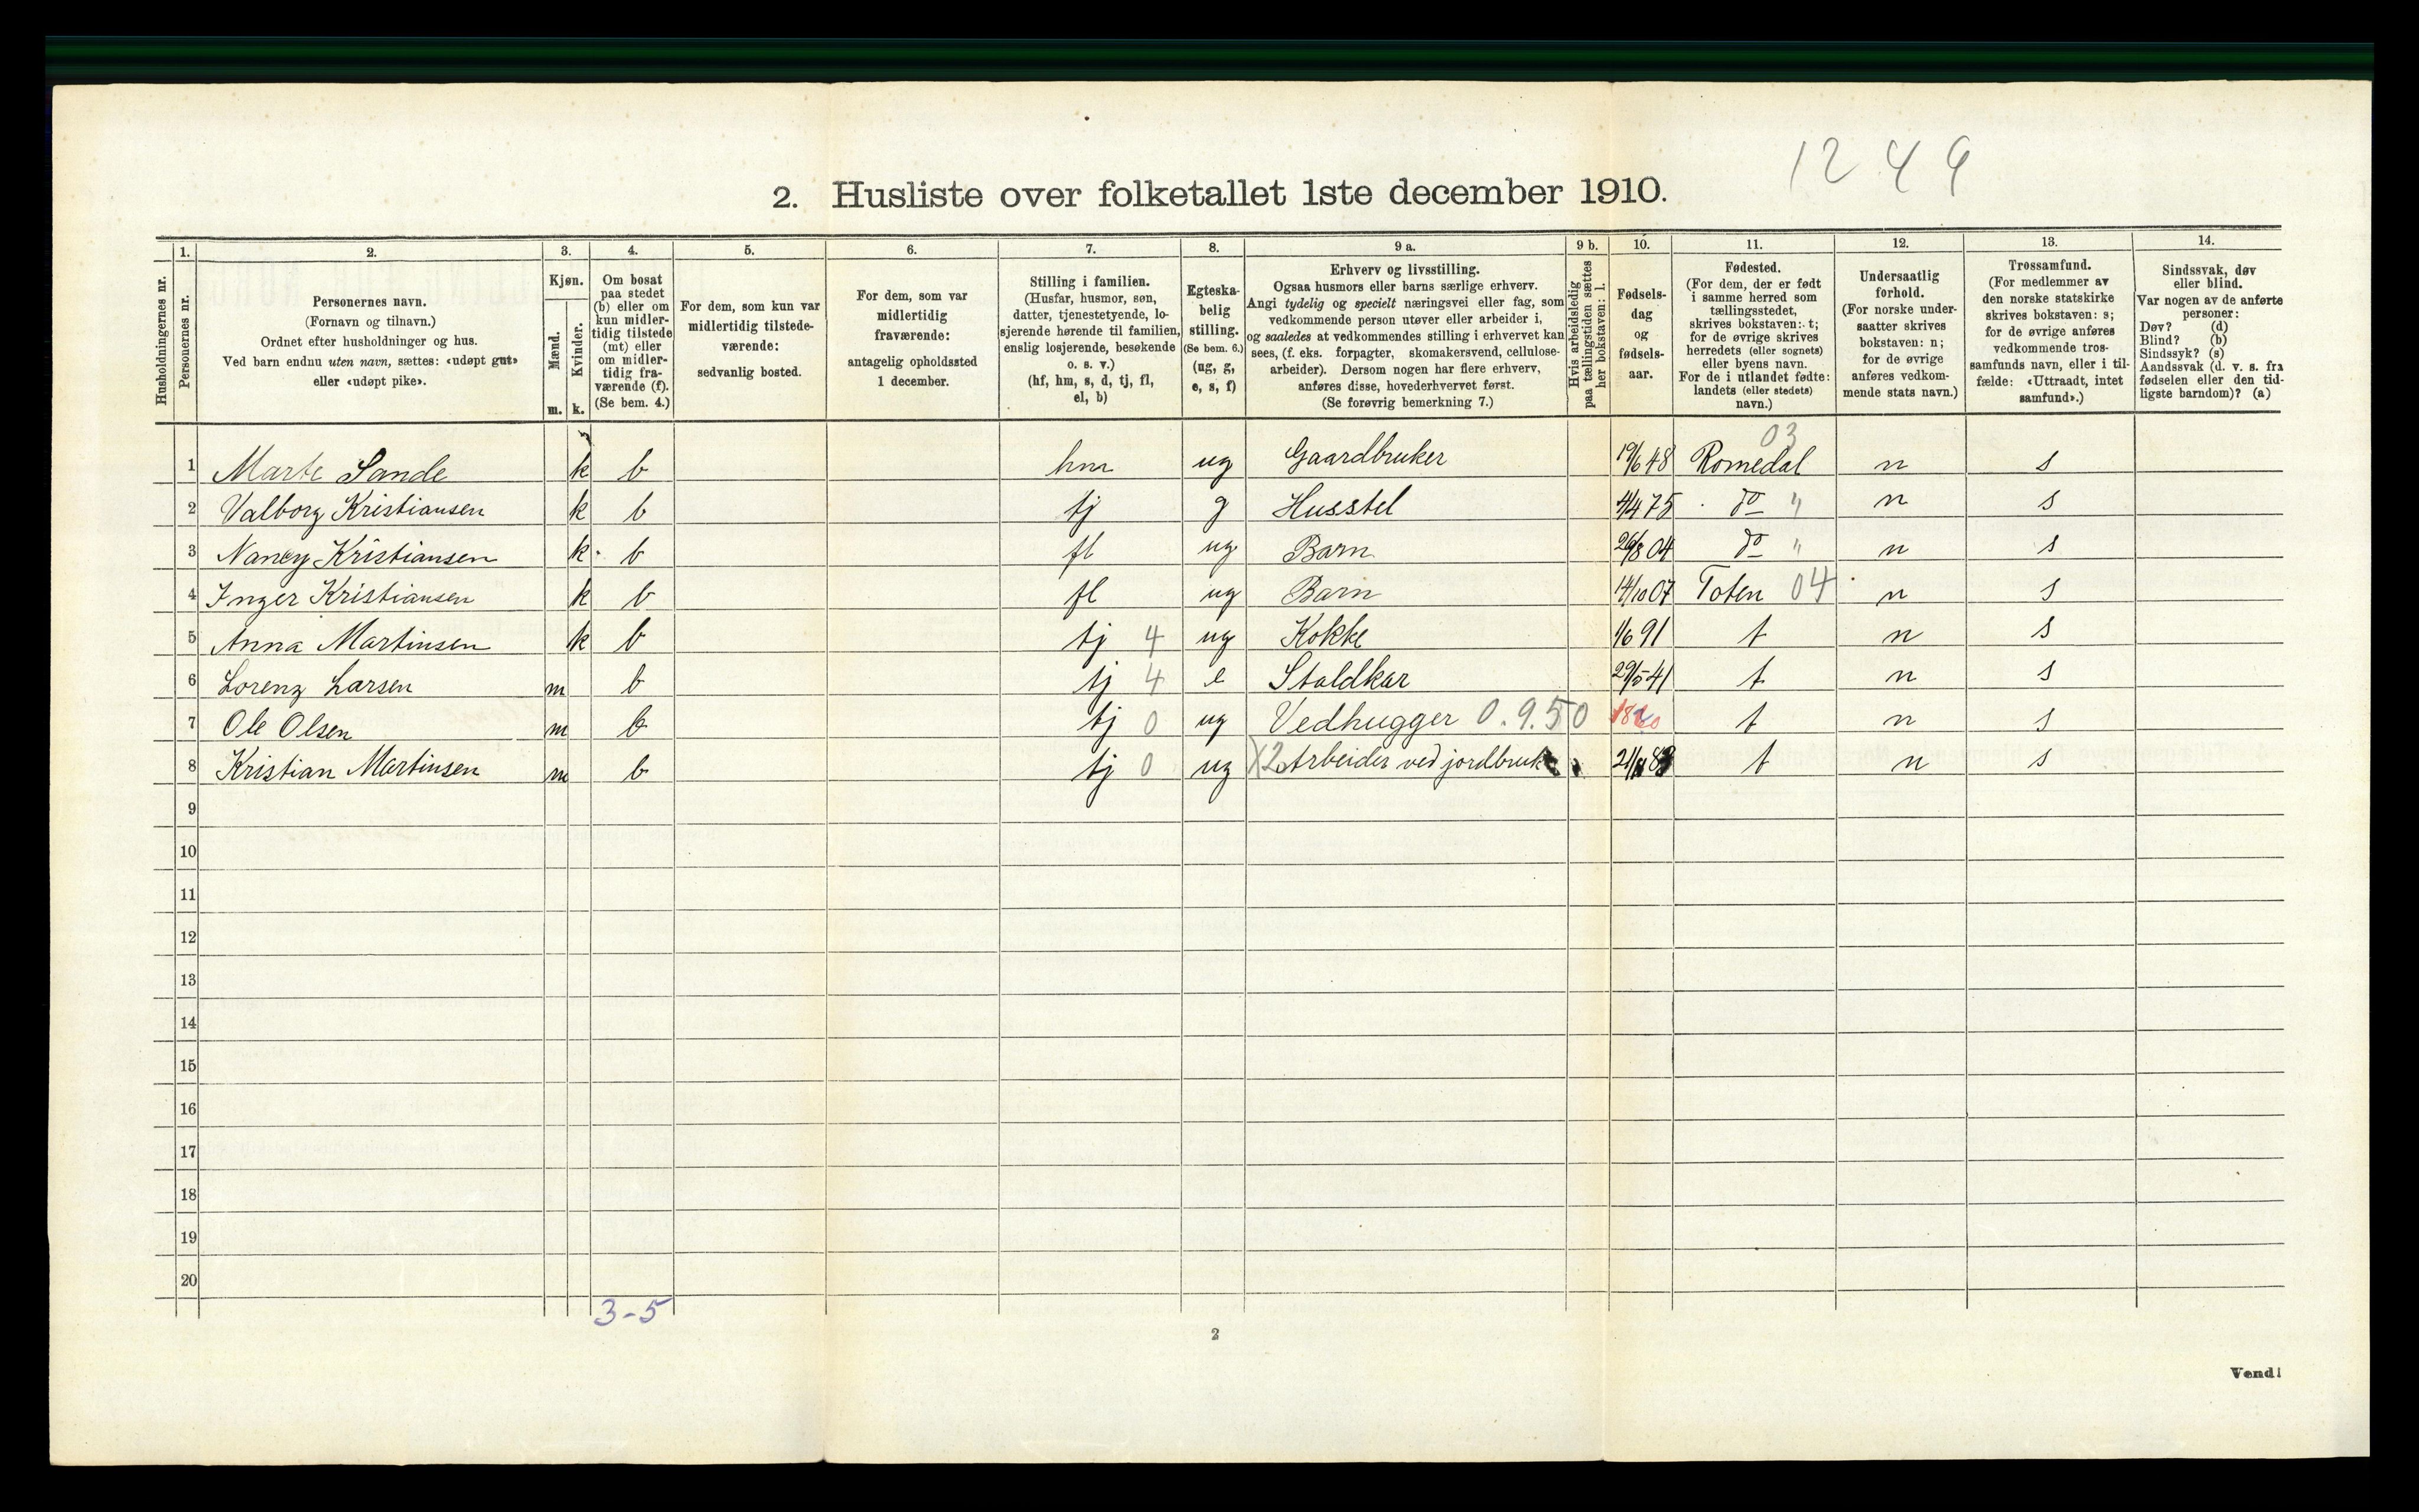 1249
2. Husliste over folketallet 1ste december 1910.
Husholdningernes nr.
1.
Personernes nr.
2.
Personernes navn.
(Fornavn og tilnavn.)
Ordnet efter husholdninger og hus.
Ved barn endnu uten navn, sættes: «udøpt gut»
eller «udøpt pike».
3.
Kjøn.
Mænd.
Kvinder.
m. k.
4.
Om bosat
paa stedet
(b) eller om
kun midler-
tidig tilstede
(mt) eller
om midler-
tidig fra-
værende (f).
(Se bem. 4.)
5.
For dem, som kun var
midlertidig tilstede-
værende:
sedvanlig bosted.
6.
For dem, som var
midlertidig
fraværende:
antagelig opholdssted
1 december.
7.
Stilling i familien.
(Husfar, husmor, søn,
datter, tjenestetyende, lo-
sjerende hørende til familien,
enslig losjerende, besøkende
o. s. v.)
(hf, hm, s, d, tj, fl,
el, b)
8.
Egteska-
belig
stilling.
(Se bem. 6.)
(ug, g,
e, s, f)
9 a.
Erhverv og livsstilling.
Ogsaa husmors eller barns særlige erhverv.
Angi tydelig og specielt næringsvei eller fag, som
vedkommende person utøver eller arbeider i,
og saaledes at vedkommendes stilling i erhvervet kan
sees, (f. eks. forpagter, skomakersvend, cellulose-
arbeider). Dersom nogen har flere erhverv,
anføres disse, hovederhvervet først.
(Se forøvrig bemerkning 7.)
9 b.
Hvis arbeidsledig
paa tællingstiden sættes
her bokstaven: l.
10.
Fødsels-
dag
og
fødsels-
aar.
11.
Fødested.
(For dem, der er født
i samme herred som
tællingsstedet,
skrives bokstaven: t;
for de øvrige skrives
herredets (eller sognets)
eller byens navn.
For de i utlandet fødte:
landets (eller stedets)
navn.)
12.
Undersaatlig
forhold.
(For norske under-
saatter skrives
bokstaven: n;
for de øvrige
anføres vedkom-
mende stats navn.)
13.
Trossamfund.
(For medlemmer av
den norske statskirke
skrives bokstaven: s;
for de øvrige anføres
vedkommende tros-
samfunds navn, eller i til-
fælde: «Uttraadt, intet
samfund».)
14.
Sindssvak, døv
eller blind.
Var nogen av de anførte
personer:
Døv? (d)
Blind? (b)
Sindssyk? (s)
Aandssvak (d. v. s. fra
fødselen eller den tid-
ligste barndom)? (a)
03
1 Marte Sande k b hm ug Gaardbruker 19/6 48 Romedal n s
2 Valborg Kristiansen k b tj g Husstel 4/4 75 do " n s
3 Nancy Kristiansen k b fl ug Barn 26/8 04 do " n s
4 Inger Kristiansen k b fl ug Barn 14/10 07 Toten 04 n s
5 Anna Martinsen k b tj 4 ug Kokke 1/6 91 t n s
6 Lorenz Larsen m b tj 4 e Staldkar 29/5 41 t n s
7 Ole Olsen m b tj 0 ug Vedhugger 0.9.50 t n s
8 Kristian Martinsen m b tj 0 ug X2 Arbeider ved jordbruk t n s
9
10
11
12
13
14
15
16
17
18
19
20
3-5
2
Vend!